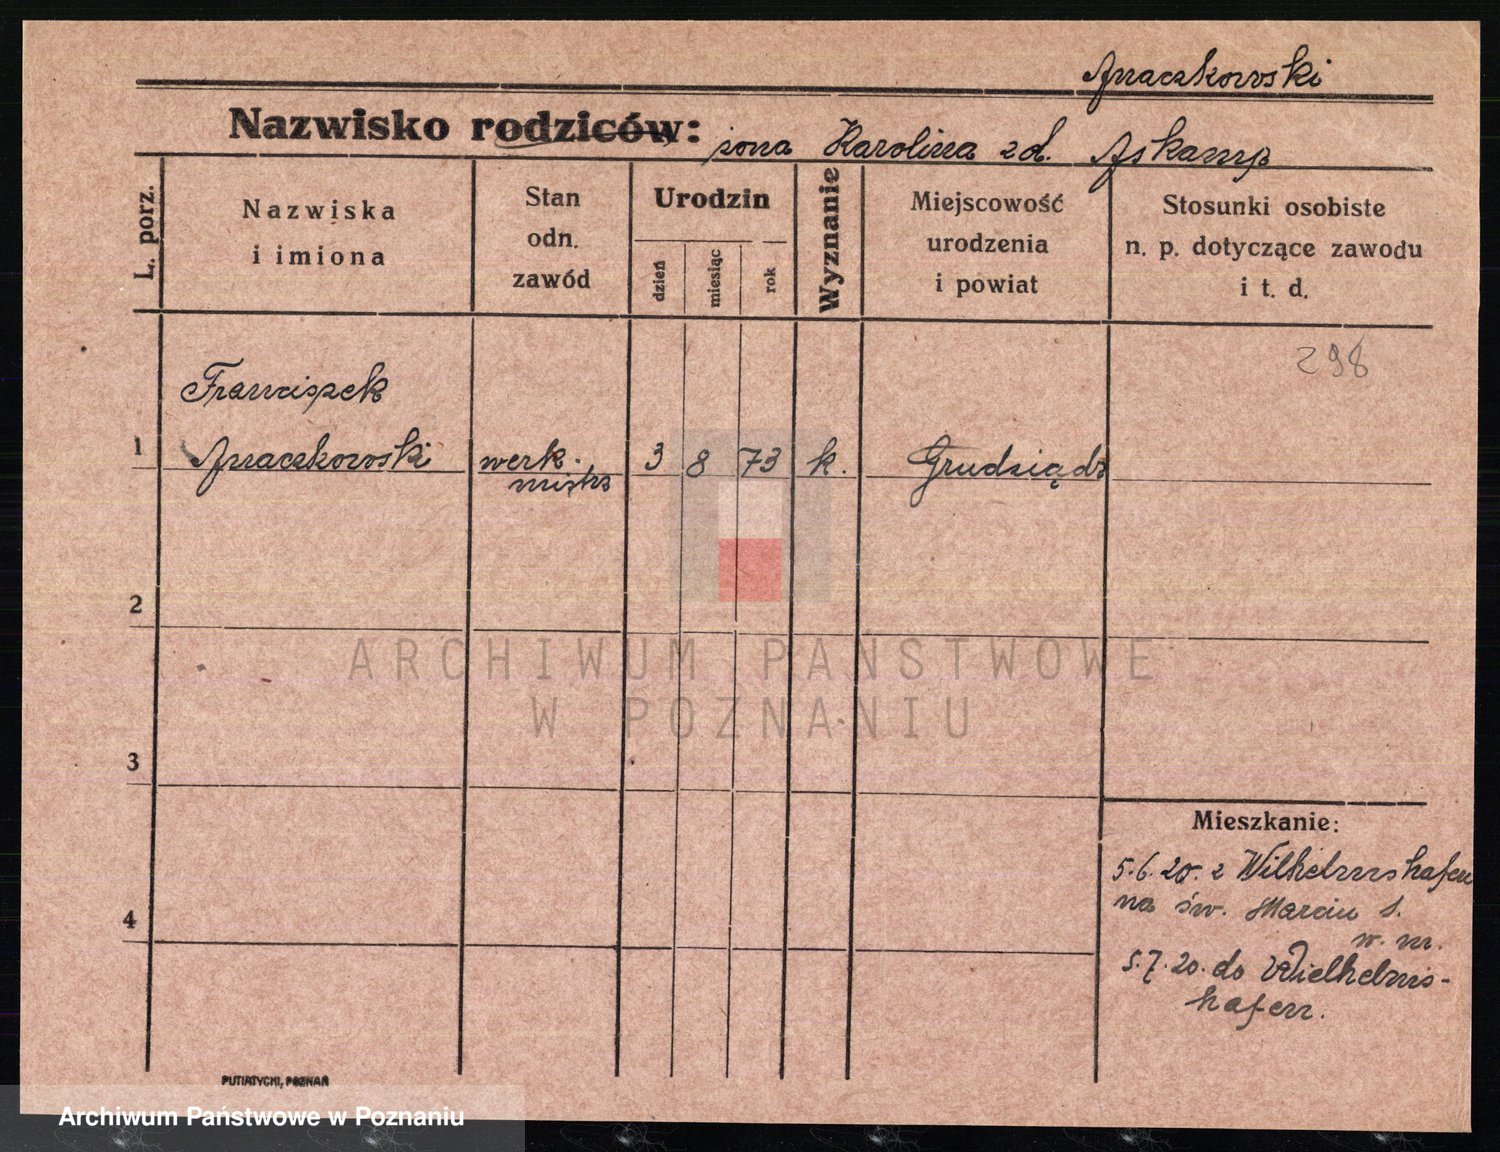 Araczkowski
Nazwisko rodziców: żona Karolina zd. Askamp
L. porz.
Nazwiska i imiona
Stan odn. zawód
Urodzin
dzień
miesiąc
rok
Wyznanie
Miejscowość urodzenia i powiat
Stosunki osobiste n. p. dotyczące zawodu i t. d.
298
Franciszek
1 Araczkowski werk. 3 8 73 k. Grudziądz
mistrz
2
3
4
Mieszkanie:
5.6.20. z Wilhelmshafen
na św. Marcin 1.
w. m.
5.7.20. do Wielhelms-
hafen.
PUTIATYCKI, POZNAŃ
ARCHIWUM PAŃSTWOWE
W POZNANIU
Archiwum Państwowe w Poznaniu